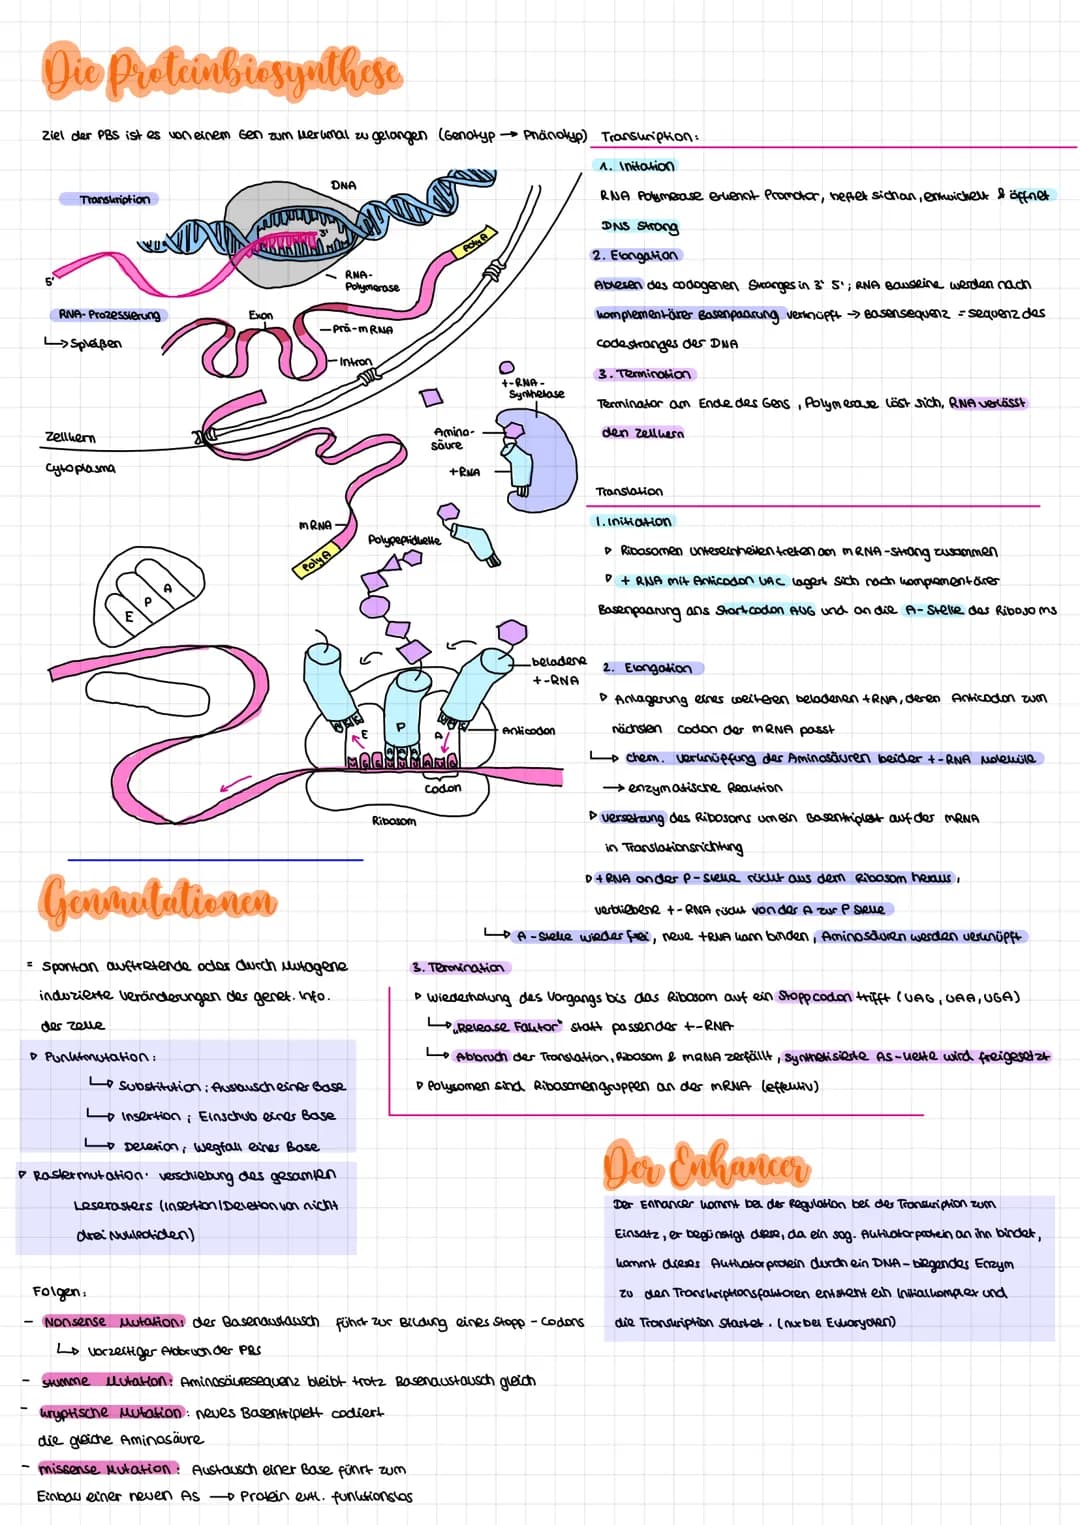 Die Proteinbiosynthese
Ziel der PBS ist es von einem Gen zum Merkmal zu gelangen (Genotyp → Phänotyp)
Transkription
DNA
3'
5'
RNA-
Polymerase
Poly A
RNA-Prozessierung
↳ Spleißen
Exon
Prä-mRNA
Intron
Zellkern
Cytoplasma
t-RNA-
Synthetase
Amino-
säure
tRNA
mRNA
Poly A
Polypeptidkette
E P A
beladene
t-RNA
Anticodon
E P A
Codon
Ribosom
Transkription:
1. Initation
RNA Polymerase erkennt Promotor, heftet sich an, entwickelt & öffnet
DNS Strang
2. Elongation
Ablesen des codogenen Stranges in 3' 5'; RNA Bausteine werden nach
komplementärer Basenpaarung verknüpft → Basensequenz = sequenz des
codestranges der DNA
3. Termination
Terminator am Ende des Gens, Polymerase löst sich, RNA verlässt
den Zellkern
Translation
1. Initiation
▹ Ribosomen untereinheiten treten am mRNA-Strang zusammen
▹ tRNA mit Anticodon UAC lagert sich nach komplementärer
Basenpaarung ans Startcodon AUG und an die A-Stelle des Ribosoms
2. Elongation
▹ Anlagerung eines weiteren beladenen tRNA, deren Anticodon zum
nächsten codon der mRNA passt
↳ chem. Verknüpfung der Aminosäuren beider t-RNA Moleküle
→ enzymatische Reaktion
▹ Versetzung des Ribosoms um ein Basentriplett auf der mRNA
in Translationsrichtung
▹ tRNA an der P-Stelle rückt aus dem Ribosom heraus,
verbliebene t-RNA rückt von der A zur P Stelle
↳ A-Stelle wieder frei, neue tRNA kann binden, Aminosäuren werden verknüpft
3. Termination
▹ Wiederholung des Vorgangs bis das Ribosom auf ein Stoppcodon trifft (UAG, UAA, UGA)
↳ „Release Faktor" statt passender t-RNA
↳ Abbruch der Translation, Ribosom & mRNA zerfällt, synthetisierte AS-Kette wird freigesetzt
▹ Polysomen sind Ribosomengruppen an der mRNA (effektiv)
Genmutationen
= spontan auftretende oder durch Mutagene
induzierte Veränderungen der genet. Info.
der Zelle
▹ Punktmutation:
↳ Substitution: Austausch einer Base
↳ Insertion; Einschub einer Base
↳ Deletion; Wegfall einer Base
▹ Rastermutation: verschiebung des gesamten
Leserasters (Insertion/Deletion von nicht
drei Nukleotiden)
Folgen:
- Nonsense Mutation: der Basenaustausch führt zur Bildung eines Stopp-Codons
↳ vorzeitiger Abbruch der PBS
- stumme Mutation: Aminosäuresequenz bleibt trotz Basenaustausch gleich
- kryptische Mutation: neues Basentriplett codiert
die gleiche Aminosäure
- missense Mutation: Austausch einer Base führt zum
Einbau einer neuen AS → Protein evtl. funktionslos
Der Enhancer
Der Enhancer kommt bei der Regulation bei der Transkription zum
Einsatz, er begünstigt diese, da ein sog. Aktivatorprotein an ihn bindet,
kommt dieses Aktivatorprotein durch ein DNA-biegendes Enzym
zu den Transkriptionsfaktoren entsteht ein Initialkomplex und
die Transkription startet. (nur bei Eukaryoten)